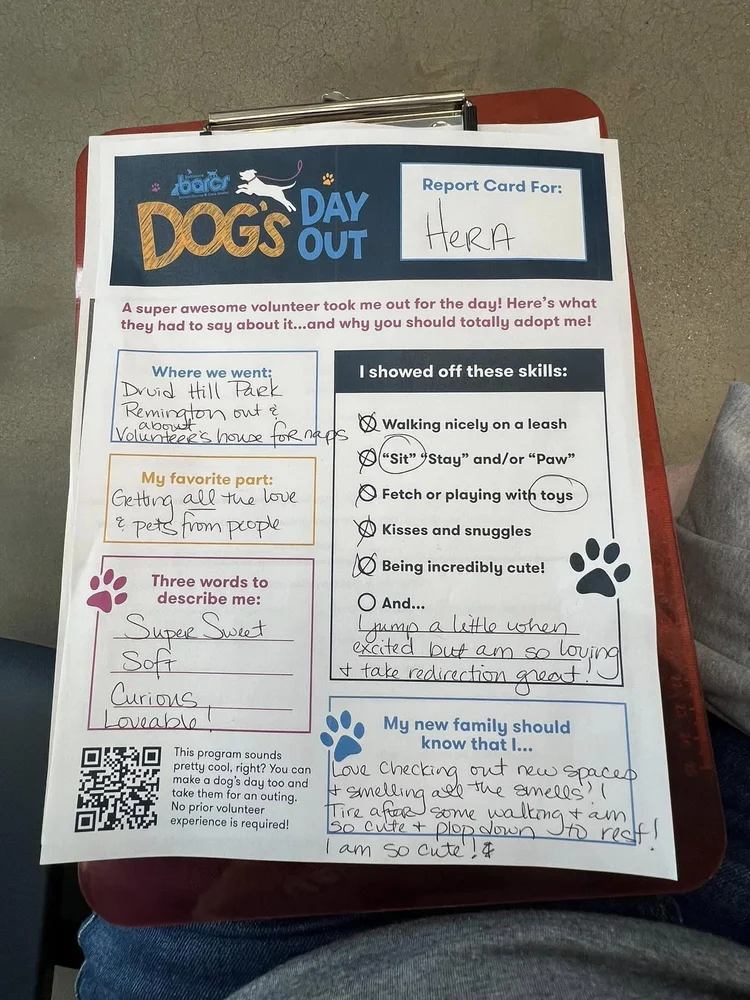 barcs
DOG'S DAY OUT
Report Card For:
HERA
A super awesome volunteer took me out for the day! Here's what
they had to say about it...and why you should totally adopt me!
Where we went:
Druid Hill Park
Remington out &
about
Volunteer's house for naps
My favorite part:
Getting all the love
& pets from people
Three words to
describe me:
Super Sweet
Soft
Curious
Loveable!
I showed off these skills:
Walking nicely on a leash
"Sit" "Stay" and/or "Paw"
Fetch or playing with toys
Kisses and snuggles
Being incredibly cute!
And...
I jump a little when
excited but am so loving
+ take redirection great!
My new family should
know that I...
Love checking out new spaces
+ smelling all the smells!!
Tire after some walking + am
so cute + plop down to rest!
I am so cute!!
This program sounds
pretty cool, right? You can
make a dog's day too and
take them for an outing.
No prior volunteer
experience is required!